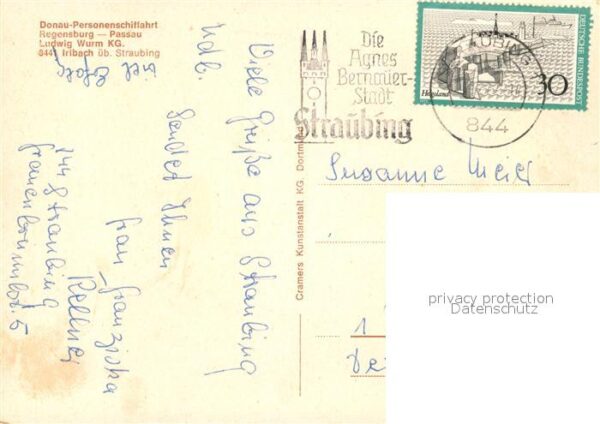 Donau-Personenschiffahrt
Regensburg — Passau
Ludwig Wurm KG.
8441 Irlbach üb. Straubing
Viele Grüße aus Straubing
Udb.
Sendet Ihnen
Frau Franziska
Kellner
844 Straubing
Cramers Kunstanstalt KG. Dortmund
Die
Agnes
Bernauer-
Stadt
Straubing
AUBING
844
DEUTSCHE BUNDESPOST
Helgoland
30
Susanne Meier
1
privacy protection
Datenschutz